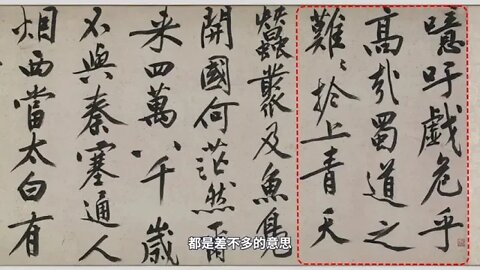 噫吁戲危乎
高哉蜀道之
難〻於上青天
蠶叢及魚鳧
開國何茫然爾
来四萬八千歲
不與秦塞通人
烟西當太白有
都是差不多的意思